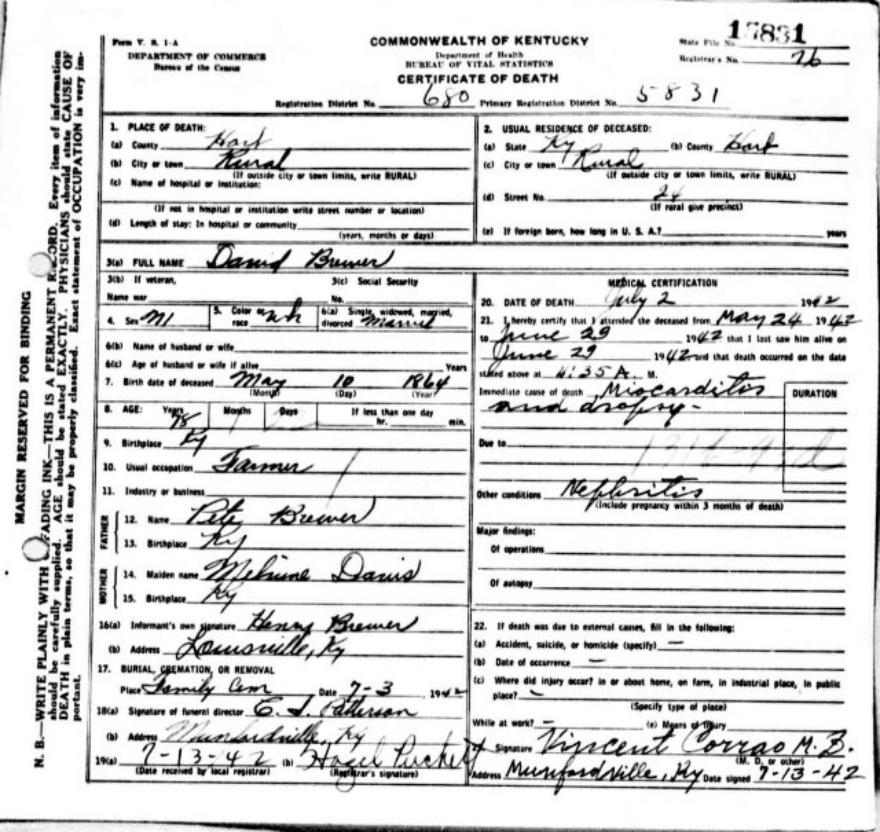 Form V. S. 1-A
DEPARTMENT OF COMMERCE
Bureau of the Census
COMMONWEALTH OF KENTUCKY
Department of Health
BUREAU OF VITAL STATISTICS
CERTIFICATE OF DEATH
State File No. 15831
Registrar's No. 76
Registration District No. 680 Primary Registration District No. 5831
MARGIN RESERVED FOR BINDING
N. B.—WRITE PLAINLY WITH UNFADING INK—THIS IS A PERMANENT RECORD. Every item of information
should be carefully supplied. AGE should be stated EXACTLY. PHYSICIANS should state CAUSE OF
DEATH in plain terms, so that it may be properly classified. Exact statement of OCCUPATION is very im-
portant.
1. PLACE OF DEATH:
(a) County Hart
(b) City or town Rural
(If outside city or town limits, write RURAL)
(c) Name of hospital or institution:
(If not in hospital or institution write street number or location)
(d) Length of stay: In hospital or community
(years, months or days)
2. USUAL RESIDENCE OF DECEASED:
(a) State Ky (b) County Hart
(c) City or town Rural
(If outside city or town limits, write RURAL)
(d) Street No. 24
(If rural give precinct)
(e) If foreign born, how long in U. S. A.? years
3(a) FULL NAME David Brewer
3(b) If veteran,
Name war
3(c) Social Security
No.
4. Sex M
5. Color or race wh
6(a) Single, widowed, married, divorced
6(b) Name of husband or wife
6(c) Age of husband or wife if alive Years
7. Birth date of deceased May 10 1864
(Month) (Day) (Year)
8. AGE: Years 78 Months Days If less than one day
hr. min.
9. Birthplace Ky
10. Usual occupation Farmer
11. Industry or business
FATHER
12. Name Pete Brewer
13. Birthplace Ky
MOTHER
14. Maiden name Davis
15. Birthplace Ky
16(a) Informant's own signature Henry Brewer
(b) Address Louisville, Ky
17. BURIAL, CREMATION, OR REMOVAL
Place Family Cem Date 7-3, 1942
18(a) Signature of funeral director Patterson
(b) Address Munfordville, Ky
19(a) 7-13-42 (b) Hazel Puckett
(Date received by local registrar) (Registrar's signature)
MEDICAL CERTIFICATION
20. DATE OF DEATH July 2 1942
21. I hereby certify that I attended the deceased from May 24 1942
to June 29 1942 that I last saw him alive on
June 29 1942 and that death occurred on the date
stated above at 4:35 A. M.
Immediate cause of death Miocarditis
and dropsy-
DURATION
Due to
Other conditions Nephritis
(Include pregnancy within 3 months of death)
Major findings:
Of operations
Of autopsy
22. If death was due to external causes, fill in the following:
(a) Accident, suicide, or homicide (specify) —
(b) Date of occurrence —
(c) Where did injury occur? in or about home, on farm, in industrial place, in public
place? —
(Specify type of place)
While at work? — (e) Means of injury
Signature Vincent Corrao M. D.
(M. D. or other)
Address Munfordville, Ky Date signed 7-13-42